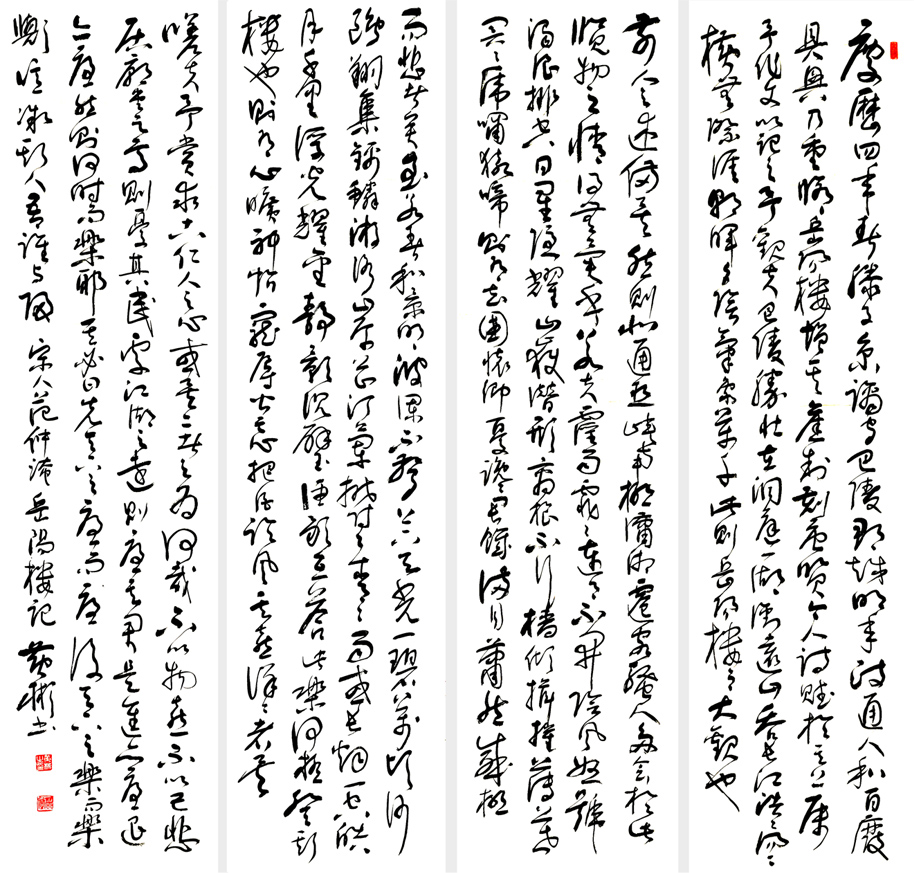 慶歷四年春滕子京謫守巴陵郡越明年政通人和百廢
具興乃重修岳陽樓增其舊制刻唐賢今人詩賦於其上屬
予作文以記之予觀夫巴陵勝狀在洞庭一湖銜遠山吞長江浩浩湯湯
橫無際涯朝暉夕陰氣象萬千此則岳陽樓之大觀也
前人之述備矣然則北通巫峽南極瀟湘遷客騷人多會於此
覽物之情得無異乎若夫霪雨霏霏連月不開陰風怒號
濁浪排空日星隱耀山嶽潛形商旅不行檣傾楫摧薄暮
冥冥虎嘯猿啼則有去國懷鄉憂讒畏譏滿目蕭然感極
而悲者矣至若春和景明波瀾不驚上下天光一碧萬頃沙
鷗翔集錦鱗游泳岸芷汀蘭郁郁青青而或長煙一空皓
月千里浮光耀金靜影沉璧漁歌互答此樂何極登斯
樓也則有心曠神怡寵辱皆忘把酒臨風其喜洋洋者矣
嗟夫予嘗求古仁人之心或異二者之為何哉不以物喜不以己悲
居廟堂之高則憂其民處江湖之遠則憂其君是進亦憂退
亦憂然則何時而樂耶其必曰先天下之憂而憂後天下之樂而樂
歟噫微斯人吾誰與歸 宋人范仲淹岳陽樓記 彬書